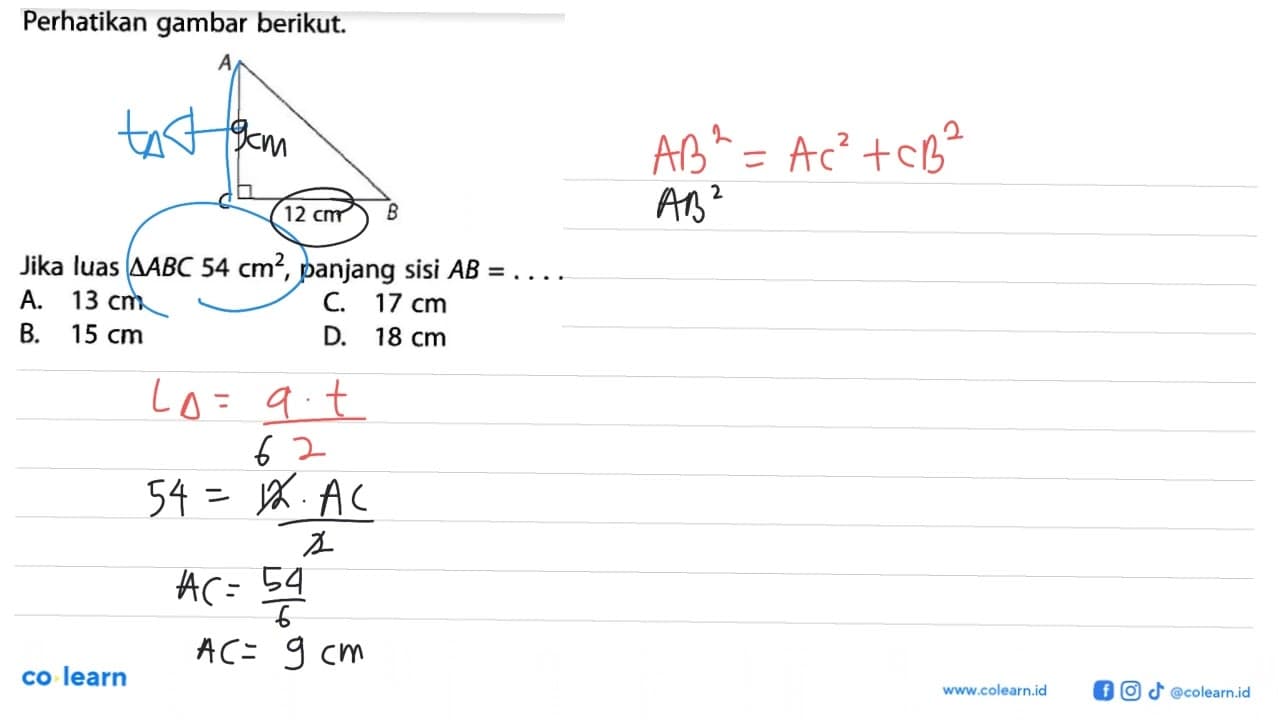 Perhatikan gambar berikut.
A
t△
9cm
C
12 cm
B
Jika luas △ABC 54 cm², panjang sisi AB = . . . .
A. 13 cm
C. 17 cm
B. 15 cm
D. 18 cm
L△ = a . t
2
6
54 = 12 . AC
2
AC = 54
6
AC = 9 cm
AB² = AC² + CB²
AB²
co learn
www.colearn.id
@colearn.id